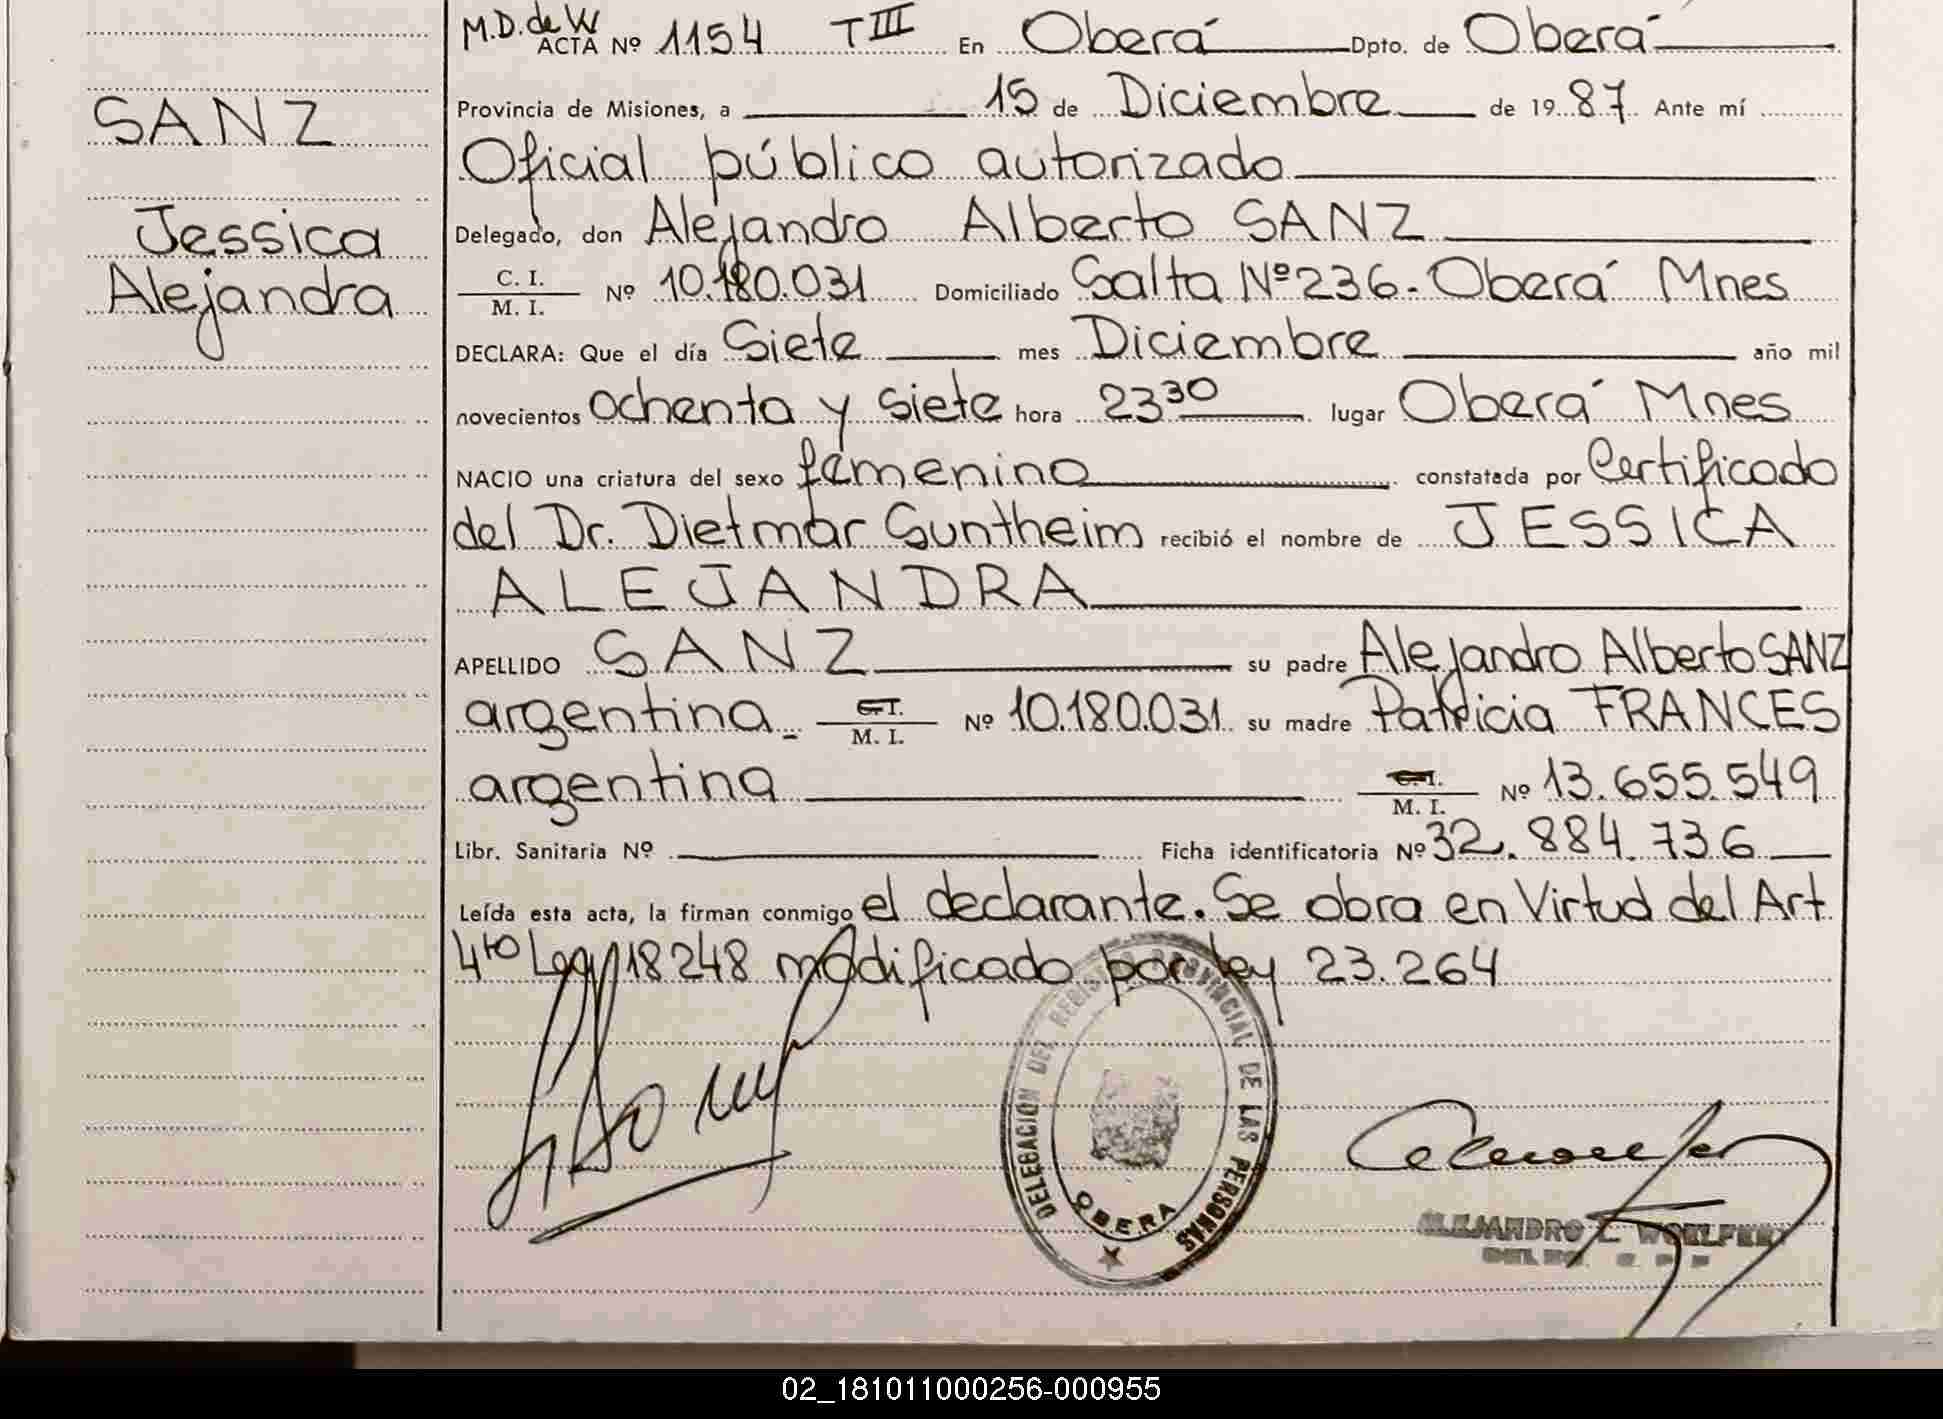 M.D. de W
ACTA Nº 1154 T III En Oberá Dpto. de Oberá
Provincia de Misiones, a 15 de Diciembre de 1987 Ante mí
Oficial público autorizado
Delegado, don Alejandro Alberto SANZ
C. I.
M. I. Nº 10.180.031 Domiciliado Salta Nº 236 - Oberá Mnes
DECLARA: Que el día Siete mes Diciembre año mil
novecientos ochenta y siete hora 23 30 lugar Oberá Mnes
NACIO una criatura del sexo femenino constatada por Certificado
del Dr. Dietmar Suntheim recibió el nombre de JESSICA
ALEJANDRA
APELLIDO SANZ su padre Alejandro Alberto SANZ
argentina - C.I. M. I. Nº 10.180.031 su madre Patricia FRANCES
argentina C.I. M. I. Nº 13.655.549
Libr. Sanitaria Nº Ficha identificatoria Nº 32.884.736
Leída esta acta, la firman conmigo el declarante. Se obra en Virtud del Art
4to Ley 18248 modificado por ley 23.264
SANZ
Jessica
Alejandra
DELEGACION DEL REGISTRO PROVINCIAL DE LAS PERSONAS
OBERA
ALEJANDRO L. WOELFERT
02_181011000256-000955